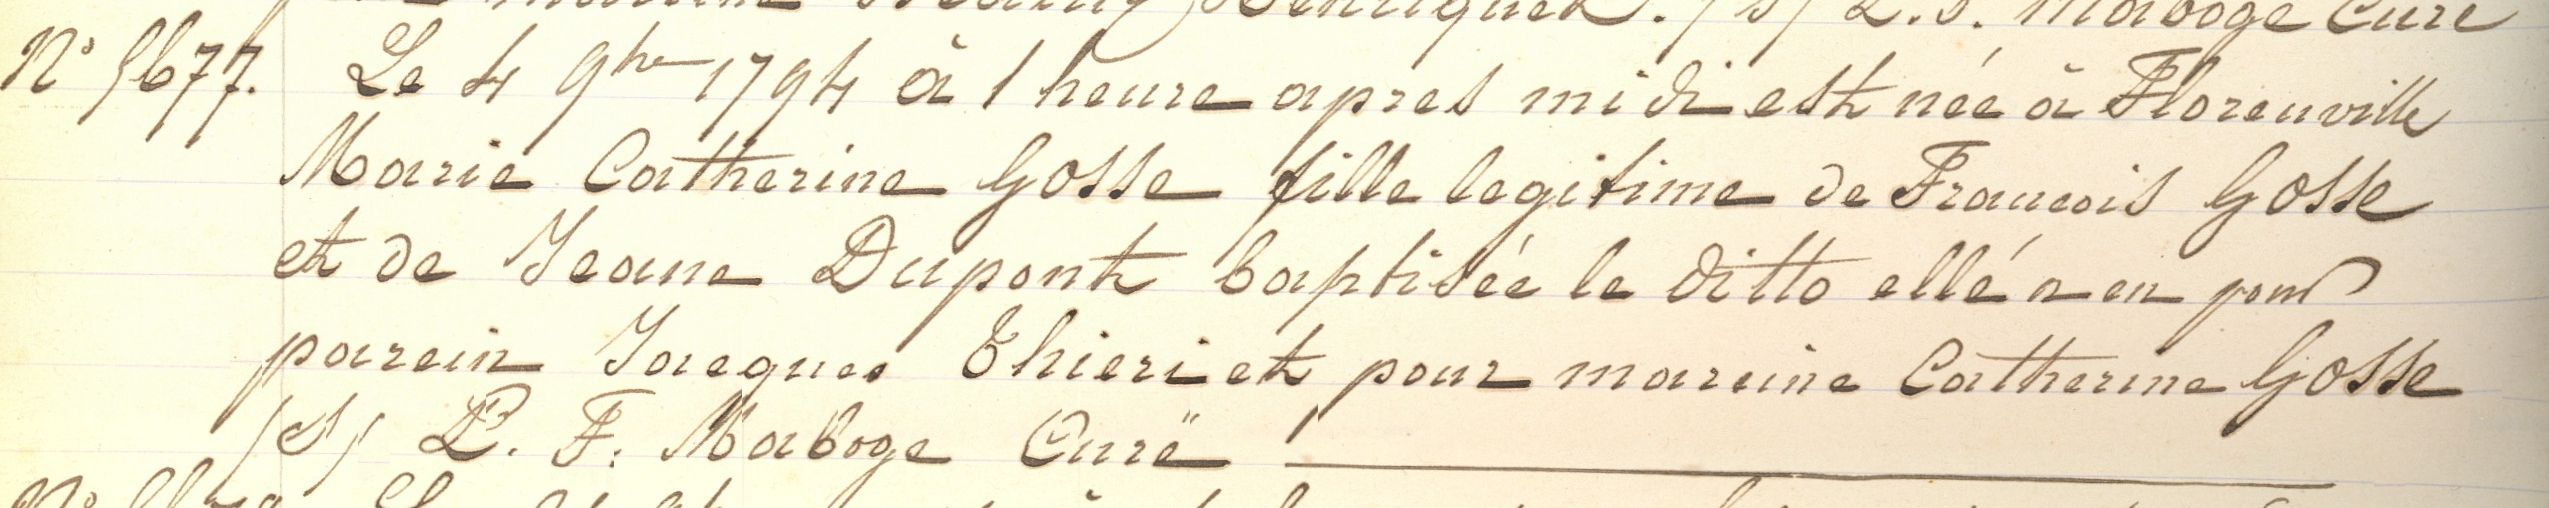 Henriquez. /s/ L. F. Maboge Curé
N° 5677. Le 4 9bre 1794 à 1 heure apres midi est née à Florenville
Marie Catherine Gosse fille legitime de Francois Gosse
et de Jeane Dupont baptisée le ditto ellé a eu pour
parein Jacques Thieri et pour mareine Catherine Gosse
/s/ L. F. Maboge Curé